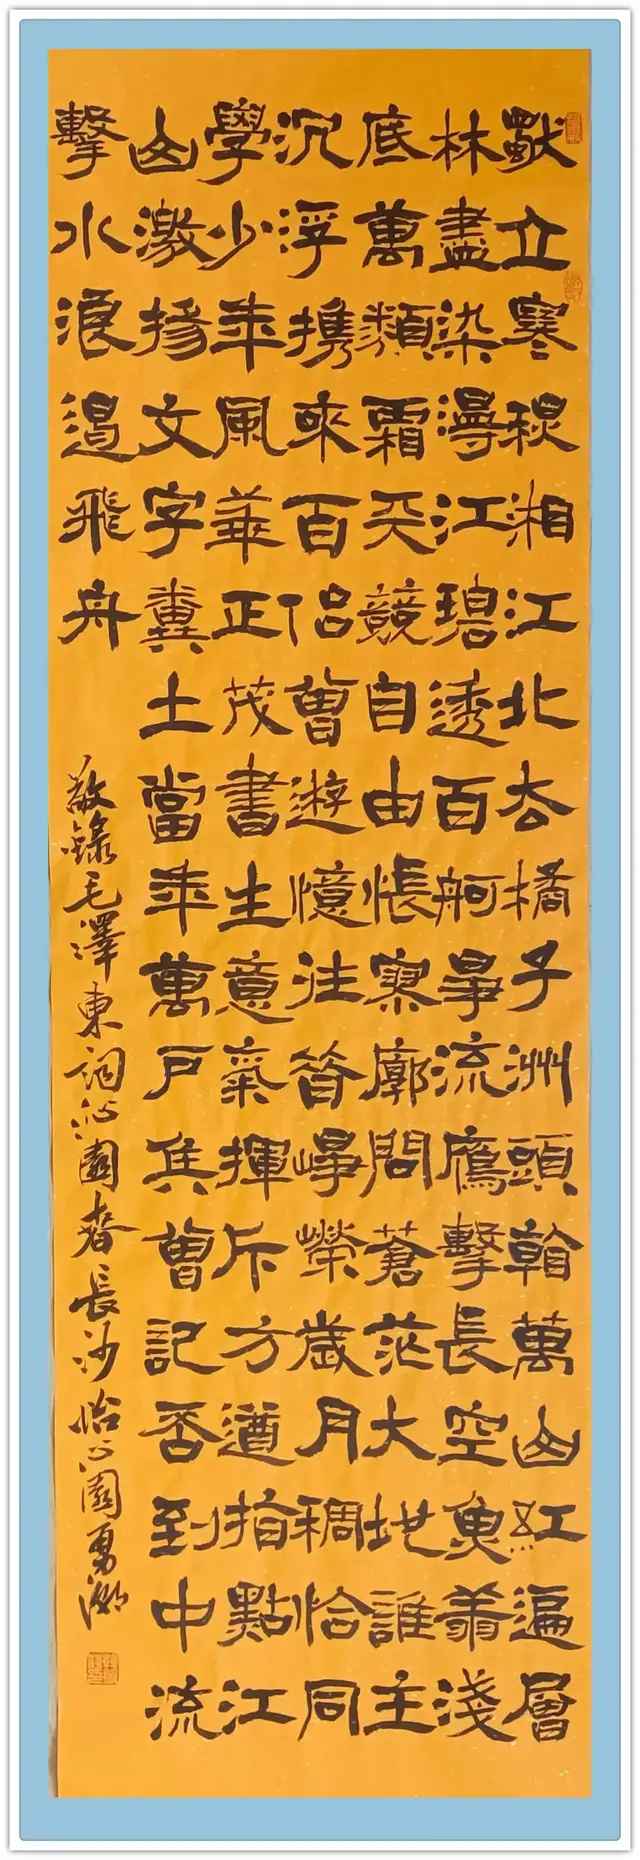 獨立寒秋湘江北去橘子洲頭看萬山紅遍層
林盡染漫江碧透百舸爭流鷹擊長空魚翔淺
底萬類霜天競自由悵寥廓問蒼茫大地誰主
沉浮携來百侶曾遊憶往昔崢嶸歲月稠恰同
學少年風華正茂書生意氣揮斥方遒指點江
山激揚文字糞土當年萬戶侯曾記否到中流
擊水浪遏飛舟
敬錄毛澤東詞沁園春長沙怡心園勇湖